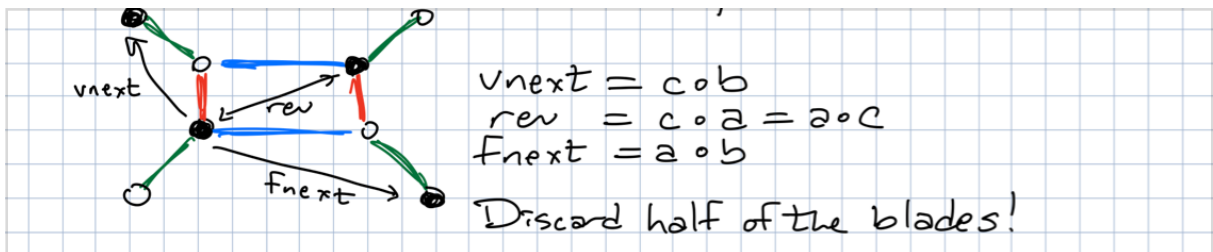 vnext
rev
fnext
vnext = c∘b
rev = c∘a = a∘c
fnext = a∘b
Discard half of the blades!